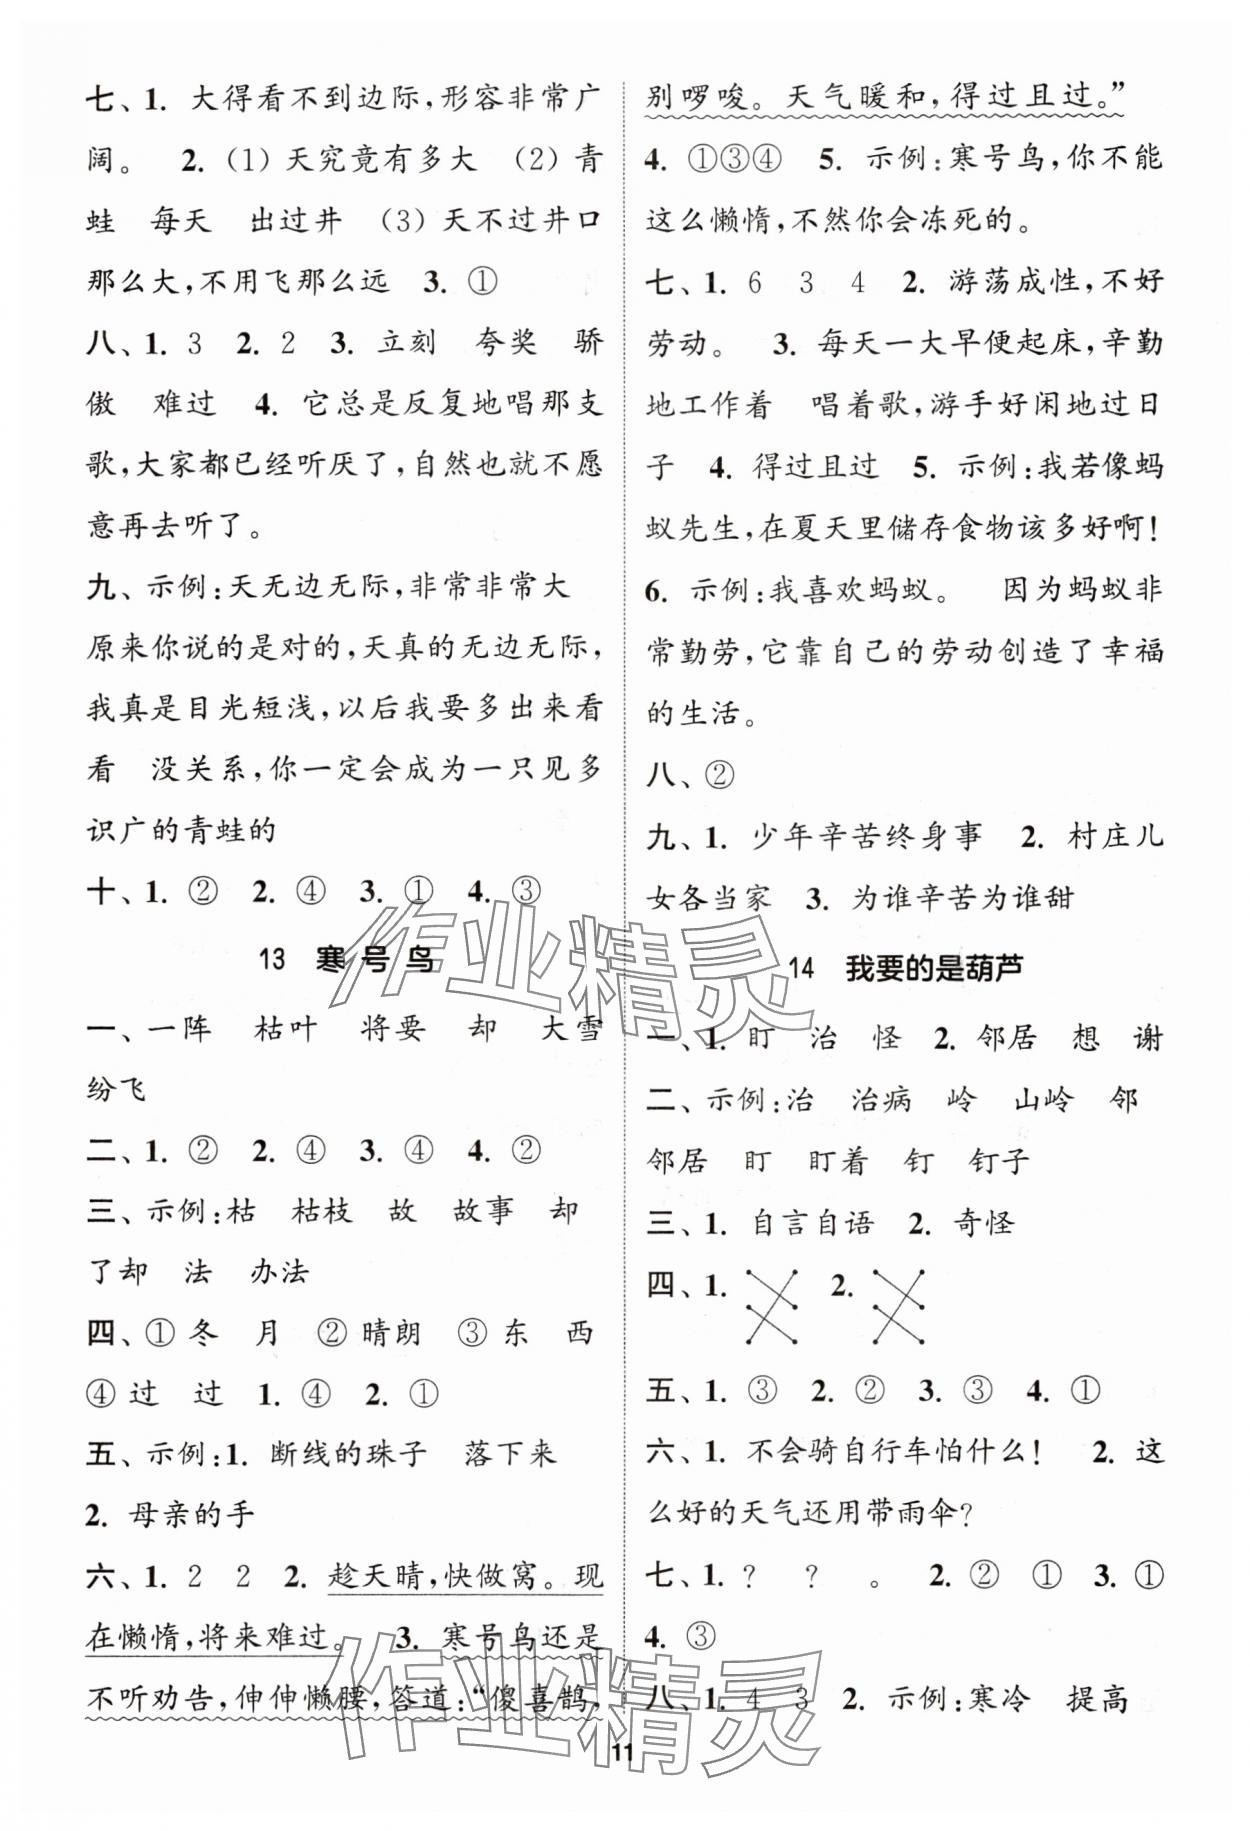 七、1. 大得看不到边际,形容非常广
阔。 2. (1)天究竟有多大 (2)青
蛙 每天 出过井 (3)天不过井口
那么大,不用飞那么远 3. ①
八、1. 3 2. 2 3. 立刻 夸奖 骄
傲 难过 4. 它总是反复地唱那支
歌,大家都已经听厌了,自然也就不愿
意再去听了。
九、示例:天无边无际,非常非常大
原来你说的是对的,天真的无边无际,
我真是目光短浅,以后我要多出来看
看 没关系,你一定会成为一只见多
识广的青蛙的
十、1. ② 2. ④ 3. ① 4. ③
13 寒号鸟
一、一阵 枯叶 将要 却 大雪
纷飞
二、1. ② 2. ④ 3. ④ 4. ②
三、示例:枯 枯枝 故 故事 却
了却 法 办法
四、① 冬 月 ② 晴朗 ③ 东 西
④ 过 过 1. ④ 2. ①
五、示例:1. 断线的珠子 落下来
2. 母亲的手
六、1. 2 2 2. 趁天晴,快做窝。现
在懒惰,将来难过。 3. 寒号鸟还是
不听劝告,伸伸懒腰,答道:“傻喜鹊,
别啰唆。天气暖和,得过且过。”
4. ①③④ 5. 示例:寒号鸟,你不能
这么懒惰,不然你会冻死的。
七、1. 6 3 4 2. 游荡成性,不好
劳动。 3. 每天一大早便起床,辛勤
地工作着 唱着歌,游手好闲地过日
子 4. 得过且过 5. 示例:我若像蚂
蚁先生,在夏天里储存食物该多好啊!
6. 示例:我喜欢蚂蚁。 因为蚂蚁非
常勤劳,它靠自己的劳动创造了幸福
的生活。
八、②
九、1. 少年辛苦终身事 2. 村庄儿
女各当家 3. 为谁辛苦为谁甜
14 我要的是葫芦
一、1. 盯 治 怪 2. 邻居 想 谢
二、示例:治 治病 岭 山岭 邻
邻居 盯 盯着 钉 钉子
三、1. 自言自语 2. 奇怪
四、1. 2.
五、1. ③ 2. ② 3. ③ 4. ①
六、1. 不会骑自行车怕什么! 2. 这
么好的天气还用带雨伞?
七、1. ? ? 。 2. ② ① 3. ①
4. ③
八、1. 4 3 2. 示例:寒冷 提高
11
作业精灵
作业精灵